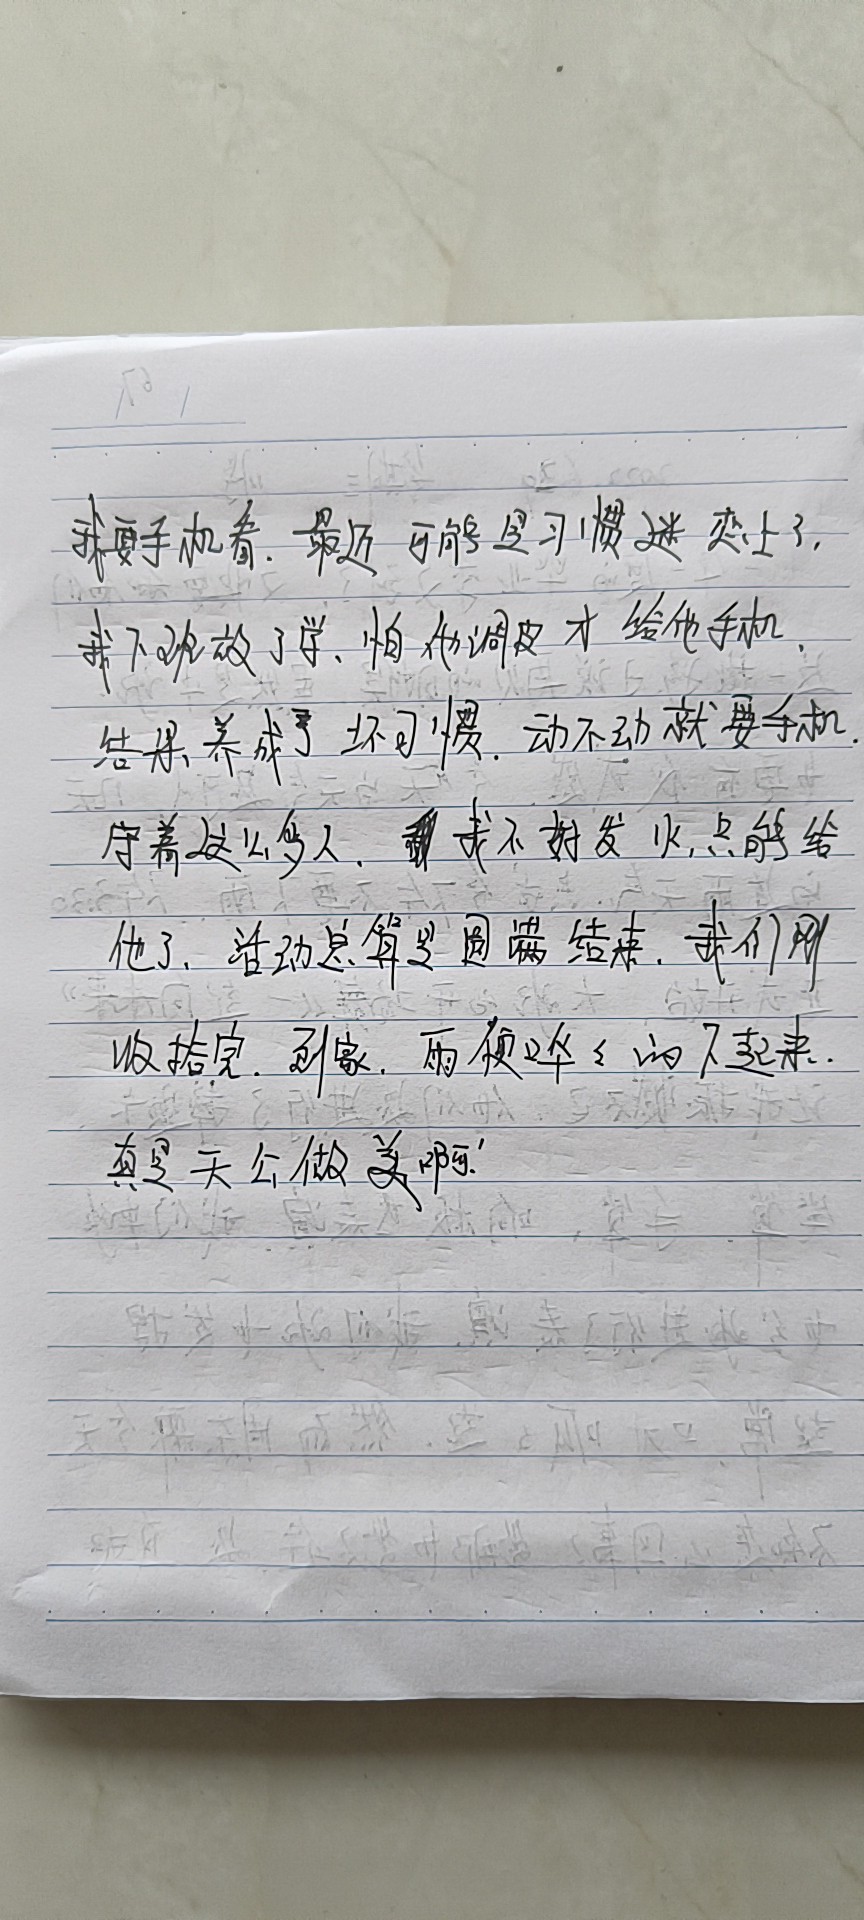 我要手机看.最近可能是习惯迷恋上了,
我下班放了学、怕他调皮才给他手机,
结果、养成了坏习惯.动不动就要手机.
守着这么多人.我不好发火,只能给
他了、活动总算是圆满结束.我们刚
收拾完.到家.雨便哗々的下起来.
真是天公做美啊!